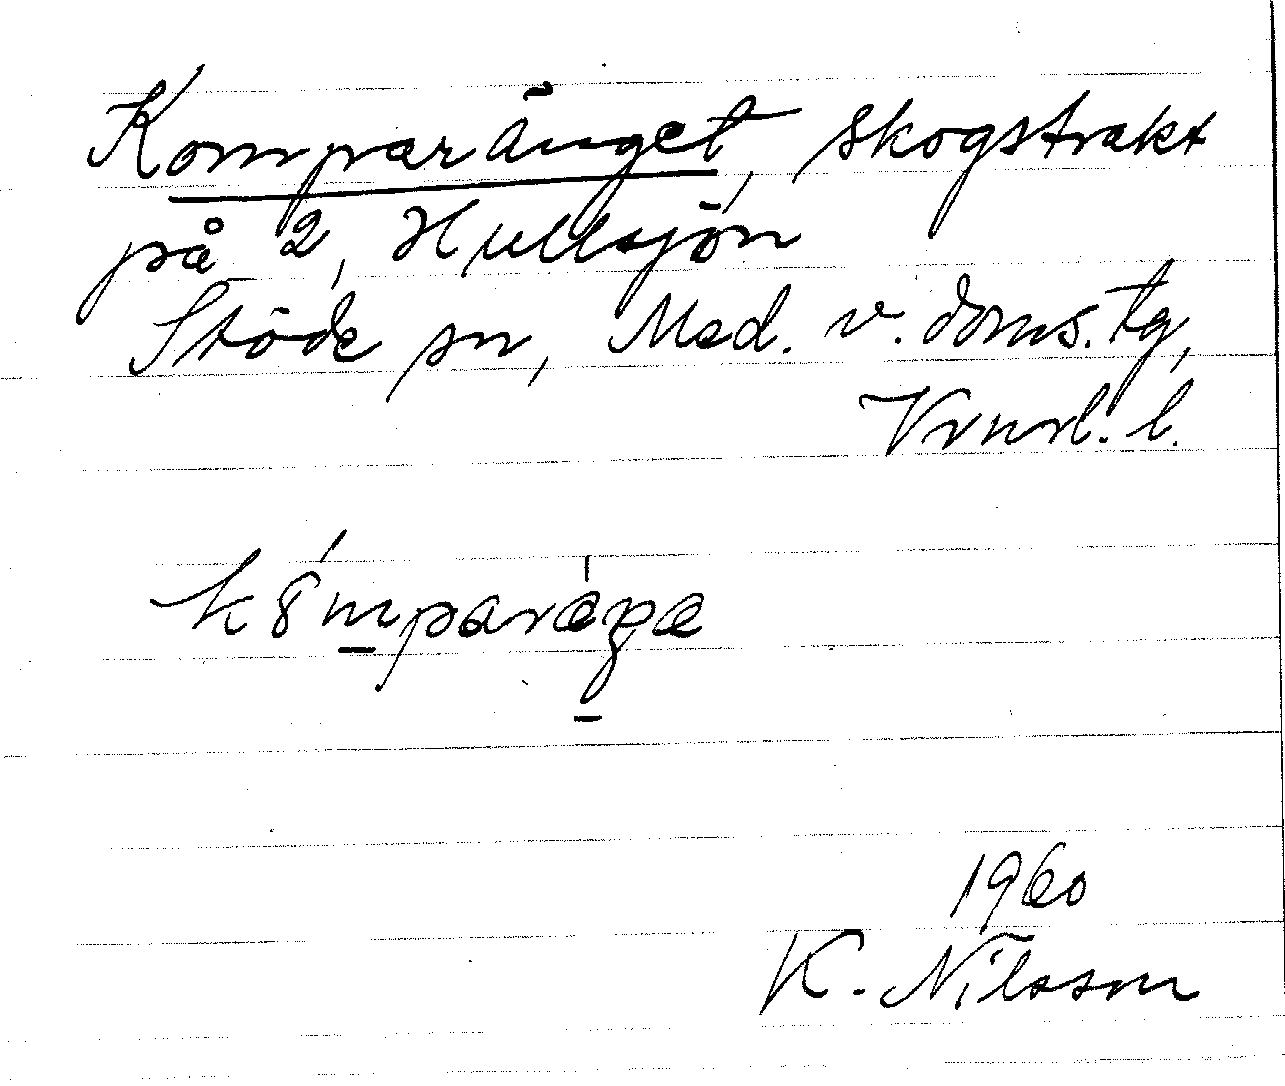 Komparänget, skogstrakt
på 2, Hullsjön
Stöde sn, Med. v. doms. tg,
Vrnrl. l.
1960
K. Nilsson